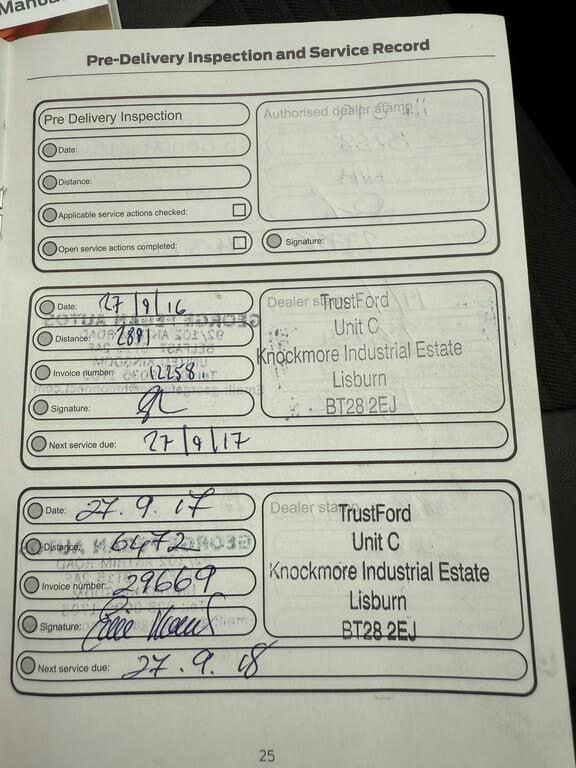 Pre-Delivery Inspection and Service Record
Pre Delivery Inspection
Date:
Distance:
Applicable service actions checked:
Open service actions completed:
Authorised dealer stamp
Signature:
Date: 27/9/16
Distance: 2881
Invoice number: 12258
Signature:
Next service due: 27/9/17
Dealer
TrustFord
Unit C
Knockmore Industrial Estate
Lisburn
BT28 2EJ
Date: 27.9.17
Distance: 6472
Invoice number: 29669
Signature:
Next service due: 27.9.18
Dealer
TrustFord
Unit C
Knockmore Industrial Estate
Lisburn
BT28 2EJ
25